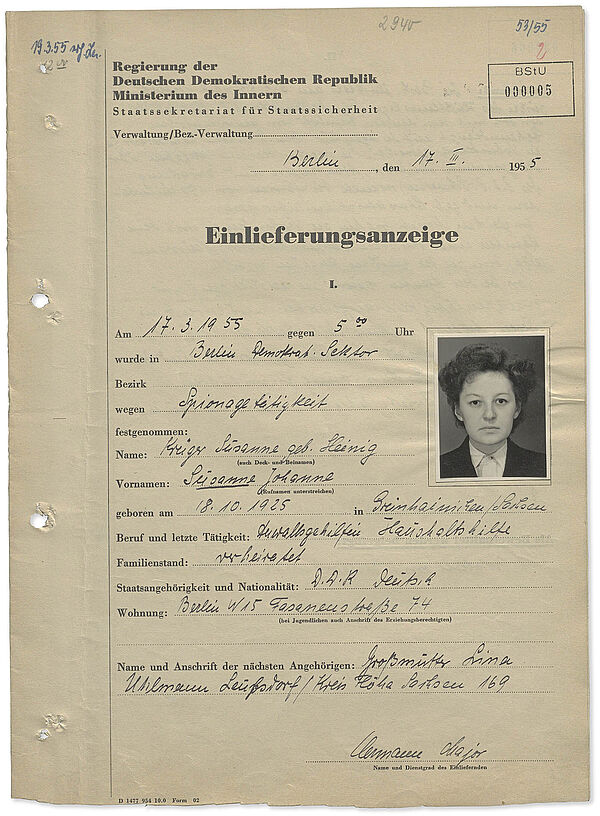 2940
53/55
19.3.55
2
BStU
000005
Regierung der
Deutschen Demokratischen Republik
Ministerium des Innern
Staatssekretariat für Staatssicherheit
Verwaltung/Bez.-Verwaltung
Berlin, den 17. III. 1955
Einlieferungsanzeige
I.
Am 17. 3. 1955 gegen 5 00 Uhr
wurde in Berlin Demokrat. Sektor
Bezirk
wegen Spionagetätigkeit
festgenommen:
Name: Krüger Susanne geb. Hennig
(auch Deck- und Beinamen)
Vornamen: Susanne Johanne
(Rufnamen unterstreichen)
geboren am 18.10.1925 in /Sachsen
Beruf und letzte Tätigkeit: Anwaltsgehilfin Haushaltshilfe
Familienstand: verheiratet
Staatsangehörigkeit und Nationalität: D.D.R Deutsch
Wohnung: Berlin W15 Fasanenstraße 74
(bei Jugendlichen auch Anschrift des Erziehungsberechtigten)
Name und Anschrift der nächsten Angehörigen: Großmutter Lina
Uhlmann /Kreis Flöha Sachsen 169
Major
Name und Dienstgrad des Einliefernden
D 1477 954 10.0 Form 02